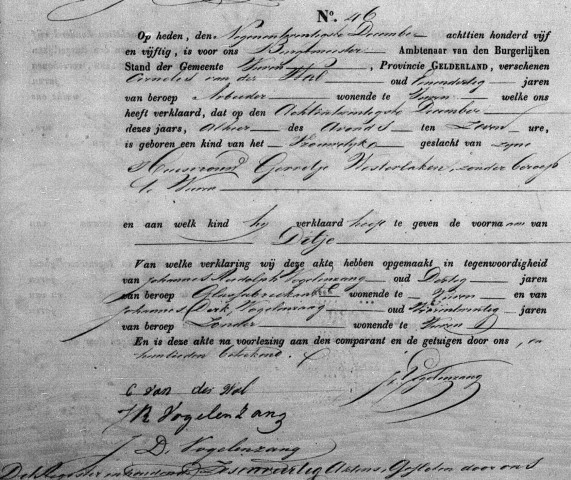 No. 46
Op heden, den Negenentwintigste December achttien honderd vijf
en vijftig, is voor ons Burgemeester Ambtenaar van den Burgerlijken
Stand der Gemeente Buren, Provincie GELDERLAND, verschenen
Cornelis van der Wal oud jaren
van beroep Arbeider wonende te Buren welke ons
heeft verklaard, dat op den Achtentwintigste December
dezes jaars, Alhier des Avonds ten Zeven ure,
is geboren een kind van het Vrouwelijke geslacht van zyne
Huisvrouw Gerretje Westerlaken, zonder beroep
te Buren
en aan welk kind hy verklaard heeft te geven de voornaam van
Ditje
Van welke verklaring wij deze akte hebben opgemaakt in tegenwoordigheid
van Johannes Rudolph Vogelenzang oud Dertig jaren
van beroep Glasfabrikant wonende te Buren en van
Johannes Dirk Vogelenzang oud jaren
van beroep Zonder wonende te Buren
En is deze akte na voorlezing aan den comparant en de getuigen door ons, en
hunlieden geteekend.
C van der Wal
J. Vogelenzang
J R Vogelenzang
J D. Vogelenzang
Dit Register inhoudende Zesenveertig Akten is Gesloten door ons